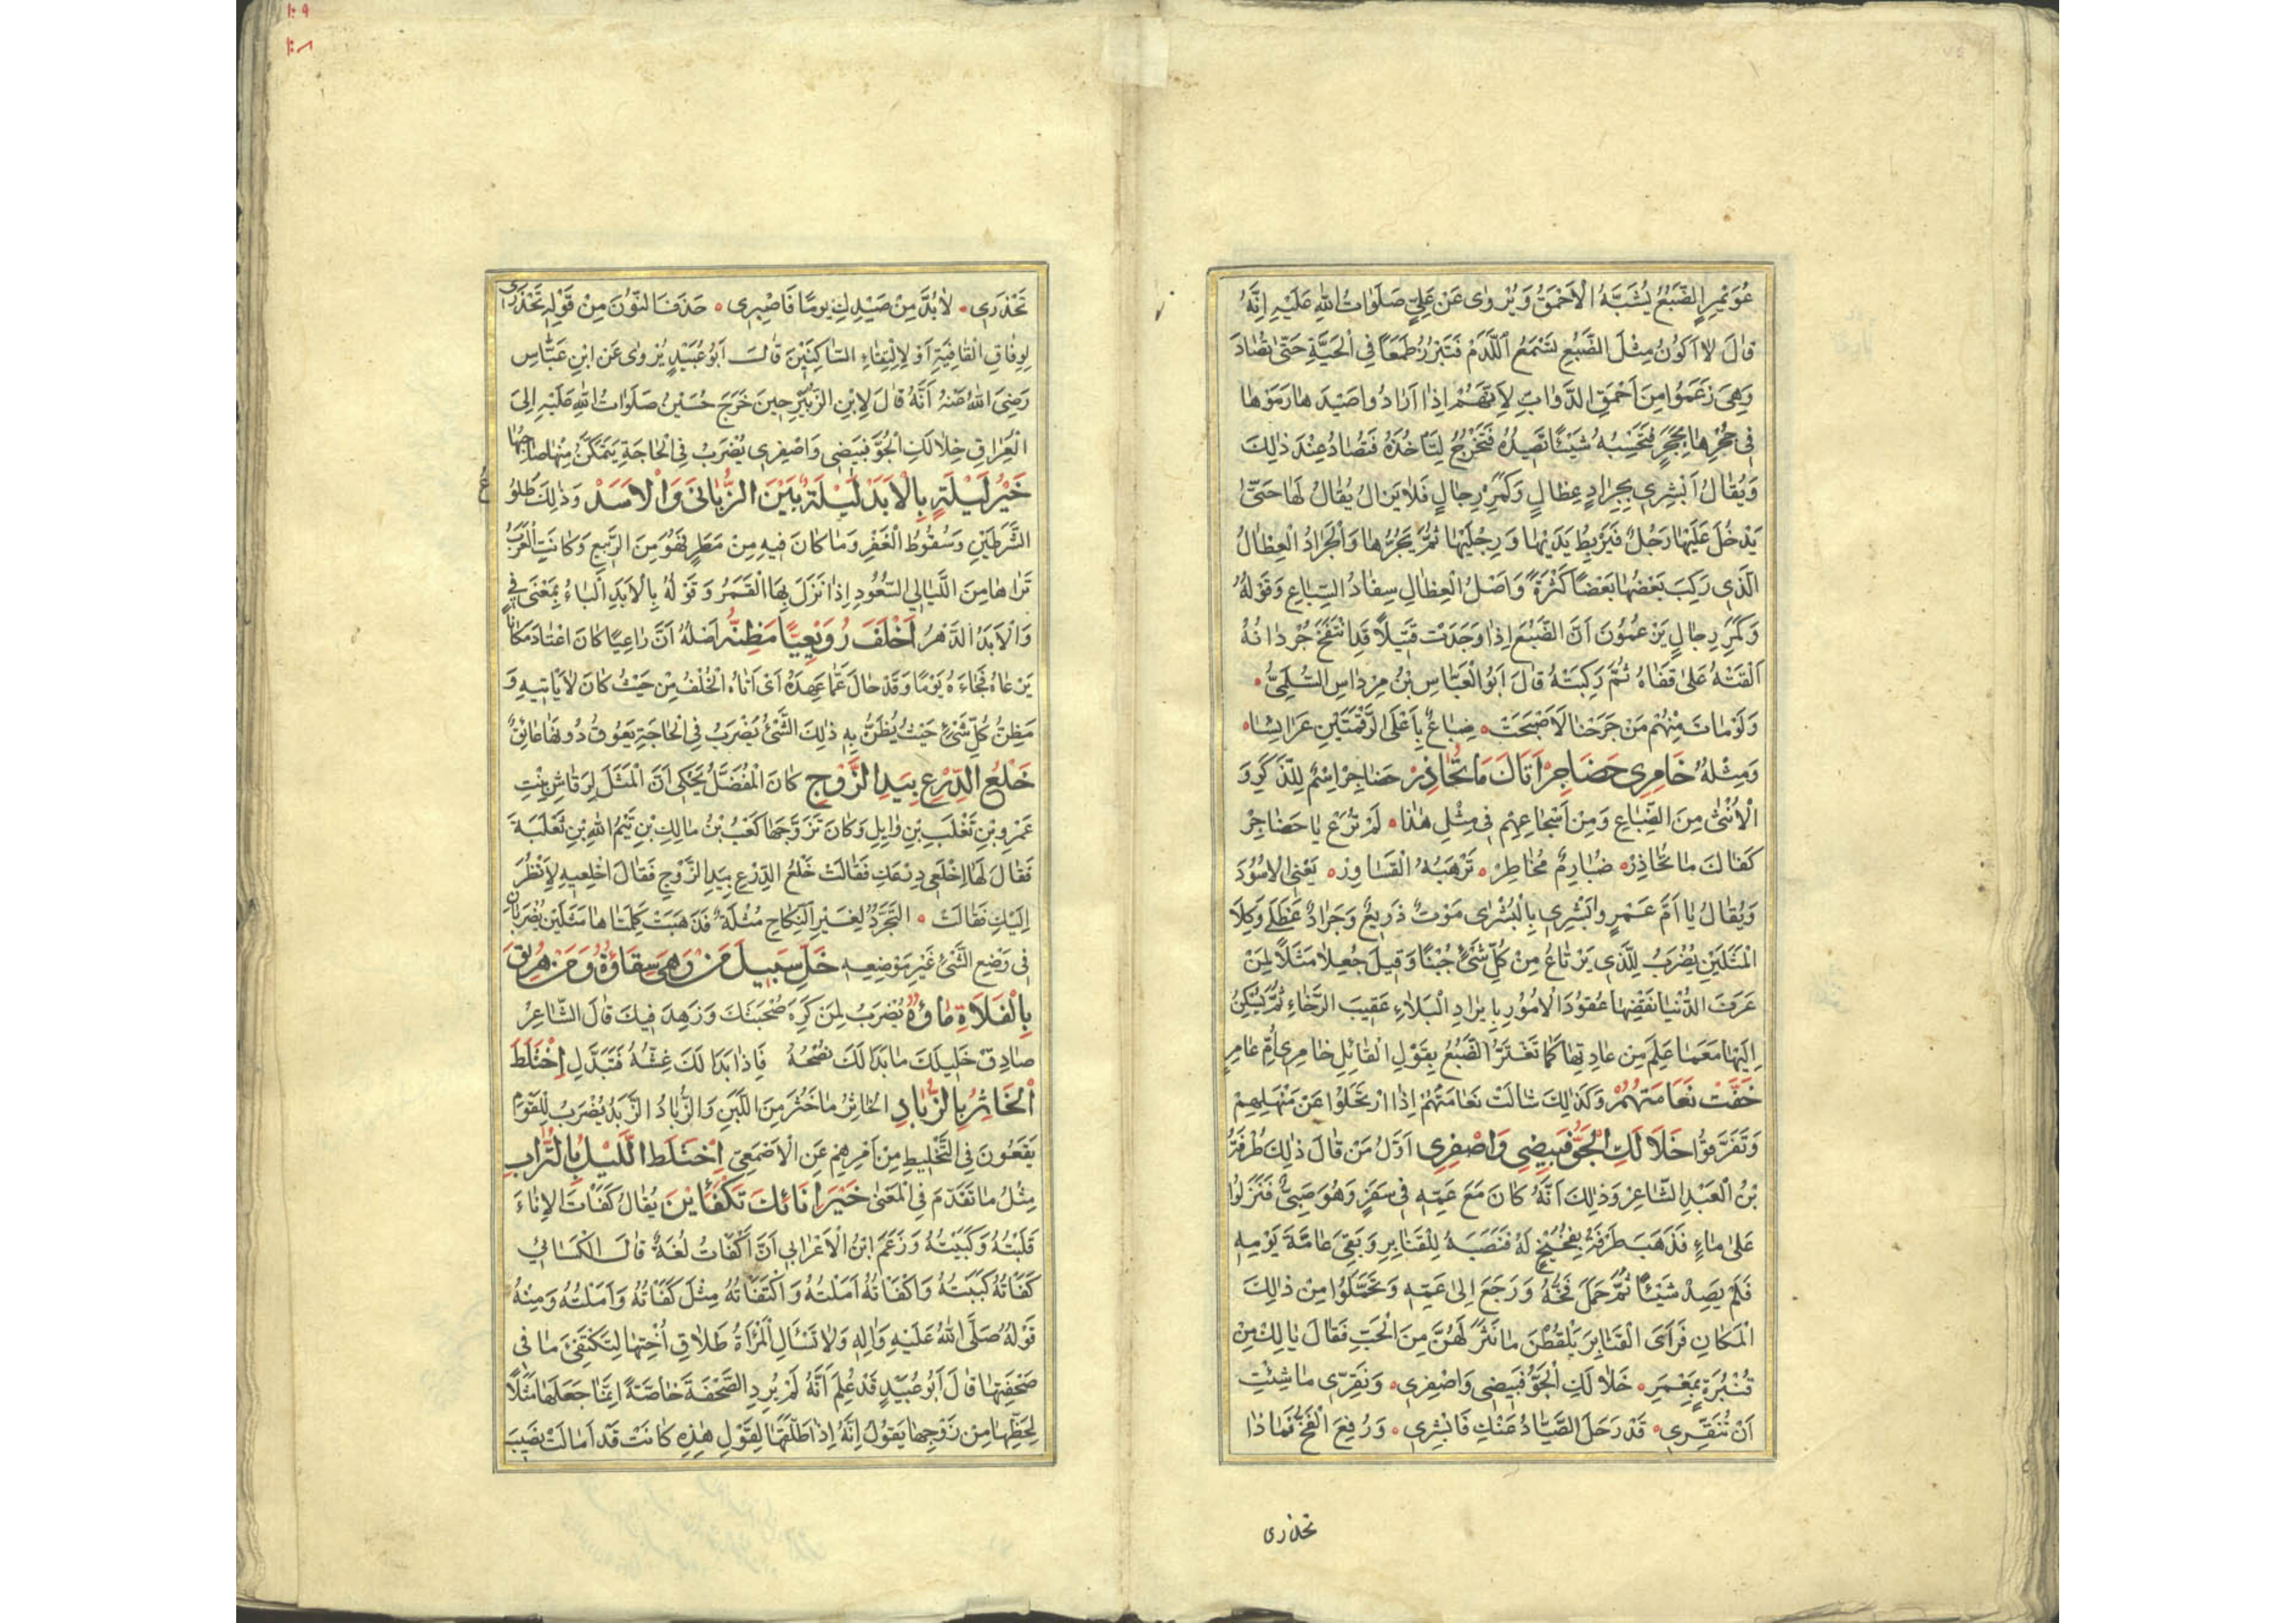 عُوَيْمِرٍ الضَّبُعُ يُشَبَّهُ الْأَحْمَقُ وَيُرْوٰى عَنْ عَلِيٍّ صَلَوَاتُ اللهِ عَلَيْهِ اِنَّهُ
قالَ لا اَكُونُ مِثْلَ الضَّبُعِ تَسْمَعُ اللَّدَمْ فَتَبْرُزُ طَمَعًا فِي الْحَيَّةِ حَتّىٰ تُصٰادَ
وَهِيَ زَعَمُوا مِنْ اَحْمَقِ الدَّوٰابِّ لِاَنَّهُمْ اِذٰا اَرٰادُوا صَيْدَهٰا رَمَوْهٰا
فِي جُحْرِهٰا بِحَجَرٍ فَتَحْسِبُهُ شَيْئًا تَصِيدُهُ فَتَخْرُجُ لِتَأْخُذَهُ فَتُصٰادُ عِنْدَ ذٰلِكَ
وَيُقٰالُ اَبْشِرِي بِجَرٰادٍ عِظٰالٍ وَكَمَرِ رِجٰالٍ فَلٰا يَزٰالُ يُقٰالُ لَهٰا حَتّىٰ
يَدْخُلَ عَلَيْهٰا رَجُلٌ فَيَرْبِطُ يَدَيْهٰا وَرِجْلَيْهٰا ثُمَّ يَجُرُّهٰا وَالْجَرٰادُ الْعِظٰالُ
الَّذِي رَكِبَ بَعْضُهٰا بَعْضًا كَثْرَةً وَاَصْلُ الْعِظٰالِ سِفٰادُ السِّبٰاعِ وَقَوْلُهُ
وَكَمَرِ رِجٰالٍ يَزْعُمُونَ اَنَّ الضَّبُعَ اِذٰا وَجَدَتْ قَتِيلًا قَدِ انْتَفَخَ جُرْدٰانُهُ
اَلْقَتْهُ عَلىٰ قَفٰاهُ ثُمَّ رَكِبَتْهُ قٰالَ اَبُو الْعَبّٰاسِ بْنُ مِرْدٰاسٍ السُّلَمِيُّ
وَلَوْ مٰاتَ مِنْهُمْ مَنْ جَرَحْنٰا لَاَصْبَحَتْ ضِبٰاعٌ بِاَعْلَى الرَّقْمَتَيْنِ عَرٰايِسٰا
وَمِثْلُهُ خٰامِرِي حَضَاجِرُ اَتَاكَ مَا تُحَاذِرْ حَضٰاجِرُ اِسْمٌ لِلذَّكَرِ وَ
الْاُنْثىٰ مِنَ الضِّبٰاعِ وَمِنْ اَسْجٰاعِهِمْ فِي مِثْلِ هٰذٰا لَمْ تُرَعْ يٰا حَضٰاجِرْ
كَفٰاكَ مٰا تُحٰاذِرْ ضُبٰارِمٌ مُخٰاطِرْ تَرْهَبُهُ الْقَسٰاوِرْ يَعْنِي الْاُسُودَ
وَيُقٰالُ يٰا اُمَّ عَمْرٍو اَبْشِرِي بِالْبُشْرٰى مَوْتٌ ذَرِيعٌ وَجَرٰادٌ عَظْلٰى وَكِلَا
الْمَثَلَيْنِ يُضْرَبُ لِلَّذِي يَرْتٰاعُ مِنْ كُلِّ شَيْءٍ جُبْنًا وَقِيلَ جُعِلٰا مَثَلًا لِمَنْ
عَرَفَ الدُّنْيٰا نَقْضِهٰا عُقُودَ الْاُمُورِ بِايرٰادِ الْبَلٰاءِ عَقِيبَ الرَّخٰاءِ ثُمَّ يَسْكُنُ
اِلَيْهٰا مَعَ مٰا عَلِمَ مِنْ عٰادِتِهٰا كَمٰا تَغْتَرُّ الضَّبُعُ بِقَوْلِ الْقٰائِلِ خٰامِرِي اُمَّ عٰامِرٍ
خَفَّتْ نَعَامَتُهُمْ وَكَذٰلِكَ شٰالَتْ نَعٰامَتُهُمْ اِذَا ارْتَحَلُوا عَنْ مَنْهَلِهِمْ
وَتَفَرَّقُوا خَلَا لَكِ الْجَوُّ فَبِيضِي وَاصْفِرِي اَوَّلُ مَنْ قٰالَ ذٰلِكَ طَرَفَةُ
بْنُ الْعَبْدِ الشّٰاعِرُ وَذٰلِكَ اَنَّهُ كٰانَ مَعَ عَمِّهِ فِي سَفَرٍ وَهُوَ صَبِيٌّ فَنَزَلُوا
عَلىٰ مٰاءٍ فَذَهَبَ طَرَفَةُ بِفُخَيْخٍ لَهُ فَنَصَبَهُ لِلْقَنٰابِرِ وَبَقِيَ عٰامَّةَ يَوْمِهِ
فَلَمْ يَصِدْ شَيْئًا ثُمَّ حَمَلَ فَخَّهُ وَرَجَعَ اِلىٰ عَمِّهِ وَتَحَمَّلُوا مِنْ ذٰلِكَ
الْمَكٰانِ فَرَأَى الْقَنٰابِرَ يَلْقُطْنَ مٰا نَثَرَ لَهُنَّ مِنَ الْحَبِّ فَقٰالَ يٰا لَكِ مِنْ
قُنْبُرَةٍ بِمَعْمَرِ خَلٰا لَكِ الْجَوُّ فَبِيضِي وَاصْفِرِي وَنَقِّرِي مٰا شِئْتِ
اَنْ تُنَقِّرِي قَدْ رَحَلَ الصَّيّٰادُ عَنْكِ فَابْشِرِي وَرُفِعَ الْفَخُّ فَمٰا ذٰا
تحذری
تَحْذَرِي لٰا بُدَّ مِنْ صَيْدِكِ يَوْمًا فَاصْبِرِي حَذَفَ النُّونَ مِنْ قَوْلِهِ تَحْذَرِي
لِوِفٰاقِ الْقٰافِيَةِ اَوْ لِالْتِقٰاءِ السّٰاكِنَيْنِ قٰالَ اَبُو عُبَيْدٍ يُرْوٰى عَنِ ابْنِ عَبّٰاسٍ
رَضِيَ اللهُ عَنْهُ اَنَّهُ قٰالَ لِابْنِ الزُّبَيْرِ حِينَ خَرَجَ حُسَيْنُ صَلَوٰاتُ اللهِ عَلَيْهِ اِلَى
الْعِرٰاقِ خَلٰا لَكِ الْجَوُّ فَبِيضِي وَاصْفِرِي يُضْرَبُ فِي الْحٰاجَةِ يَتَمَكَّنُ مِنْهٰا صٰاحِبُهٰا
خَيْرُ لَيْلَةٍ بِالْاَبَدْ لَيْلَةٌ بَيْنَ الزُّبَانَى وَالْاَسَدْ وَذٰلِكَ طُلُوعُ
الشَّرَطَيْنِ وَسُقُوطُ الْغَفْرِ وَمٰا كٰانَ فِيهِ مِنْ مَطَرٍ فَهُوَ مِنَ الرَّبِيعِ وَكٰانَتِ الْعَرَبُ
تَرٰاهٰا مِنَ اللَّيٰالِي السُّعُودِ اِذٰا نَزَلَ بِهَا الْقَمَرُ وَقَوْلُهُ بِالْاَبَدِ الْبٰاءُ بِمَعْنٰى فِي
وَالْاَبَدُ الدَّهْرُ اَخْلَفَ رُوَيْعِيًّا مَظِنُّهُ اَصْلُهُ اَنَّ رٰاعِيًا كٰانَ اعْتٰادَ مَكٰانًا
يَرْعٰاهُ فَجٰاءَهُ يَوْمًا وَقَدْ حٰالَ عَمّٰا عَهِدَهُ اَىْ اَتٰاهُ الْخُلْفُ مِنْ حَيْثُ كٰانَ لٰا يَأْتِيهِ وَ
مَظِنُّ كُلِّ شَيْءٍ حَيْثُ يُظَنُّ بِهِ ذٰلِكَ الشَّيْءُ يُضْرَبُ فِي الْحٰاجَةِ يَعُوقُ دُونَهٰا عٰائِقٌ
خَلْعُ الدِّرْعِ بِيَدِ الزَّوْجِ كٰانَ الْمُفَضَّلُ يَحْكِي اَنَّ الْمَثَلَ لِرَقٰاشِ بِنْتِ
عَمْرِو بْنِ تَغْلَبِ بْنِ وٰايِلٍ وَكٰانَ تَزَوَّجَهٰا كَعْبُ بْنُ مٰالِكِ بْنِ تَيْمِ اللهِ بْنِ ثَعْلَبَةَ
فَقٰالَ لَهٰا اِخْلَعِي دِرْعَكِ فَقٰالَتْ خَلْعُ الدِّرْعِ بِيَدِ الزَّوْجِ فَقٰالَ اخْلِعِيهِ لِاَنْظُرَ
اِلَيْكِ فَقٰالَتْ التَّجَرُّدُ لِغَيْرِ النِّكٰاحِ مُثْلَةٌ فَذَهَبَتْ كَلِمَتٰاهٰا مَثَلَيْنِ يُضْرَبٰانِ
فِي وَضْعِ الشَّيْءِ غَيْرِ مَوْضِعِهِ خَلِّ سَبِيلَ مَنْ وَهَى سِقَاؤُهُ وَمَنْ هُرِيقَ
بِالْفَلَاةِ مَاؤُهُ يُضْرَبُ لِمَنْ كَرِهَ صُحْبَتَكَ وَزَهِدَ فِيكَ قٰالَ الشّٰاعِرُ
صٰادِقْ خَلِيلَكَ مٰا بَدٰا لَكَ نُصْحُهُ فَاِذٰا بَدٰا لَكَ غِشُّهُ فَتَبَدَّلِ اِخْتَلَطَ
الْخَاثِرُ بِالزُّبَادِ الْخٰاثِرُ مٰا خَثُرَ مِنَ اللَّبَنِ وَالزُّبٰادُ الزُّبَدُ يُضْرَبُ لِلْقَوْمِ
يَقَعُونَ فِي التَّخْلِيطِ مِنْ اَمْرِهِمْ عَنِ الْاَصْمَعِيِّ اِخْتَلَطَ اللَّيْلُ بِالتُّرَابِ
مِثْلُ مٰا تَقَدَّمَ فِي الْمَعْنىٰ خَيْرَ اِنَائَكَ تَكْفَئَيْنَ يُقٰالُ كَفَأْتُ الْاِنٰاءَ
قَلَبْتُهُ وَكَبَبْتُهُ وَزَعَمَ ابْنُ الْاَعْرٰابِي اَنَّ اَكْفَأْتُ لُغَةٌ قٰالَ الْكَسٰائِيُ
كَفَأْتُهُ كَبَبْتُهُ وَاكْفَأْتُهُ اَمَلْتُهُ وَاكْتَفَأْتُهُ مِثْلَ كَفَأْتُهُ وَاَمَلْتُهُ وَمِنْهُ
قَوْلُهُ صَلَّى اللهُ عَلَيْهِ وَاٰلِهِ وَلٰا تَسْئَالِ الْمَرْأَةُ طَلٰاقِ اُخْتِهٰا لِتَكْتَفِئَ مٰا فِي
صَحْفَتِهٰا قٰالَ اَبُو عُبَيْدٍ قَدْ عُلِمَ اَنَّهُ لَمْ يُرِدِ الصَّحْفَةَ خٰاصَّةً اِنَّمٰا جَعَلَهٰا مَثَلًا
لِحَظِّهٰا مِنْ زَوْجِهٰا يَقُولُ اِنَّهُ اِذٰا طَلَّقَهٰا لِقَوْلِ هٰذِهِ كٰانَتْ قَدْ اَمٰالَتْ نَصِيبَ